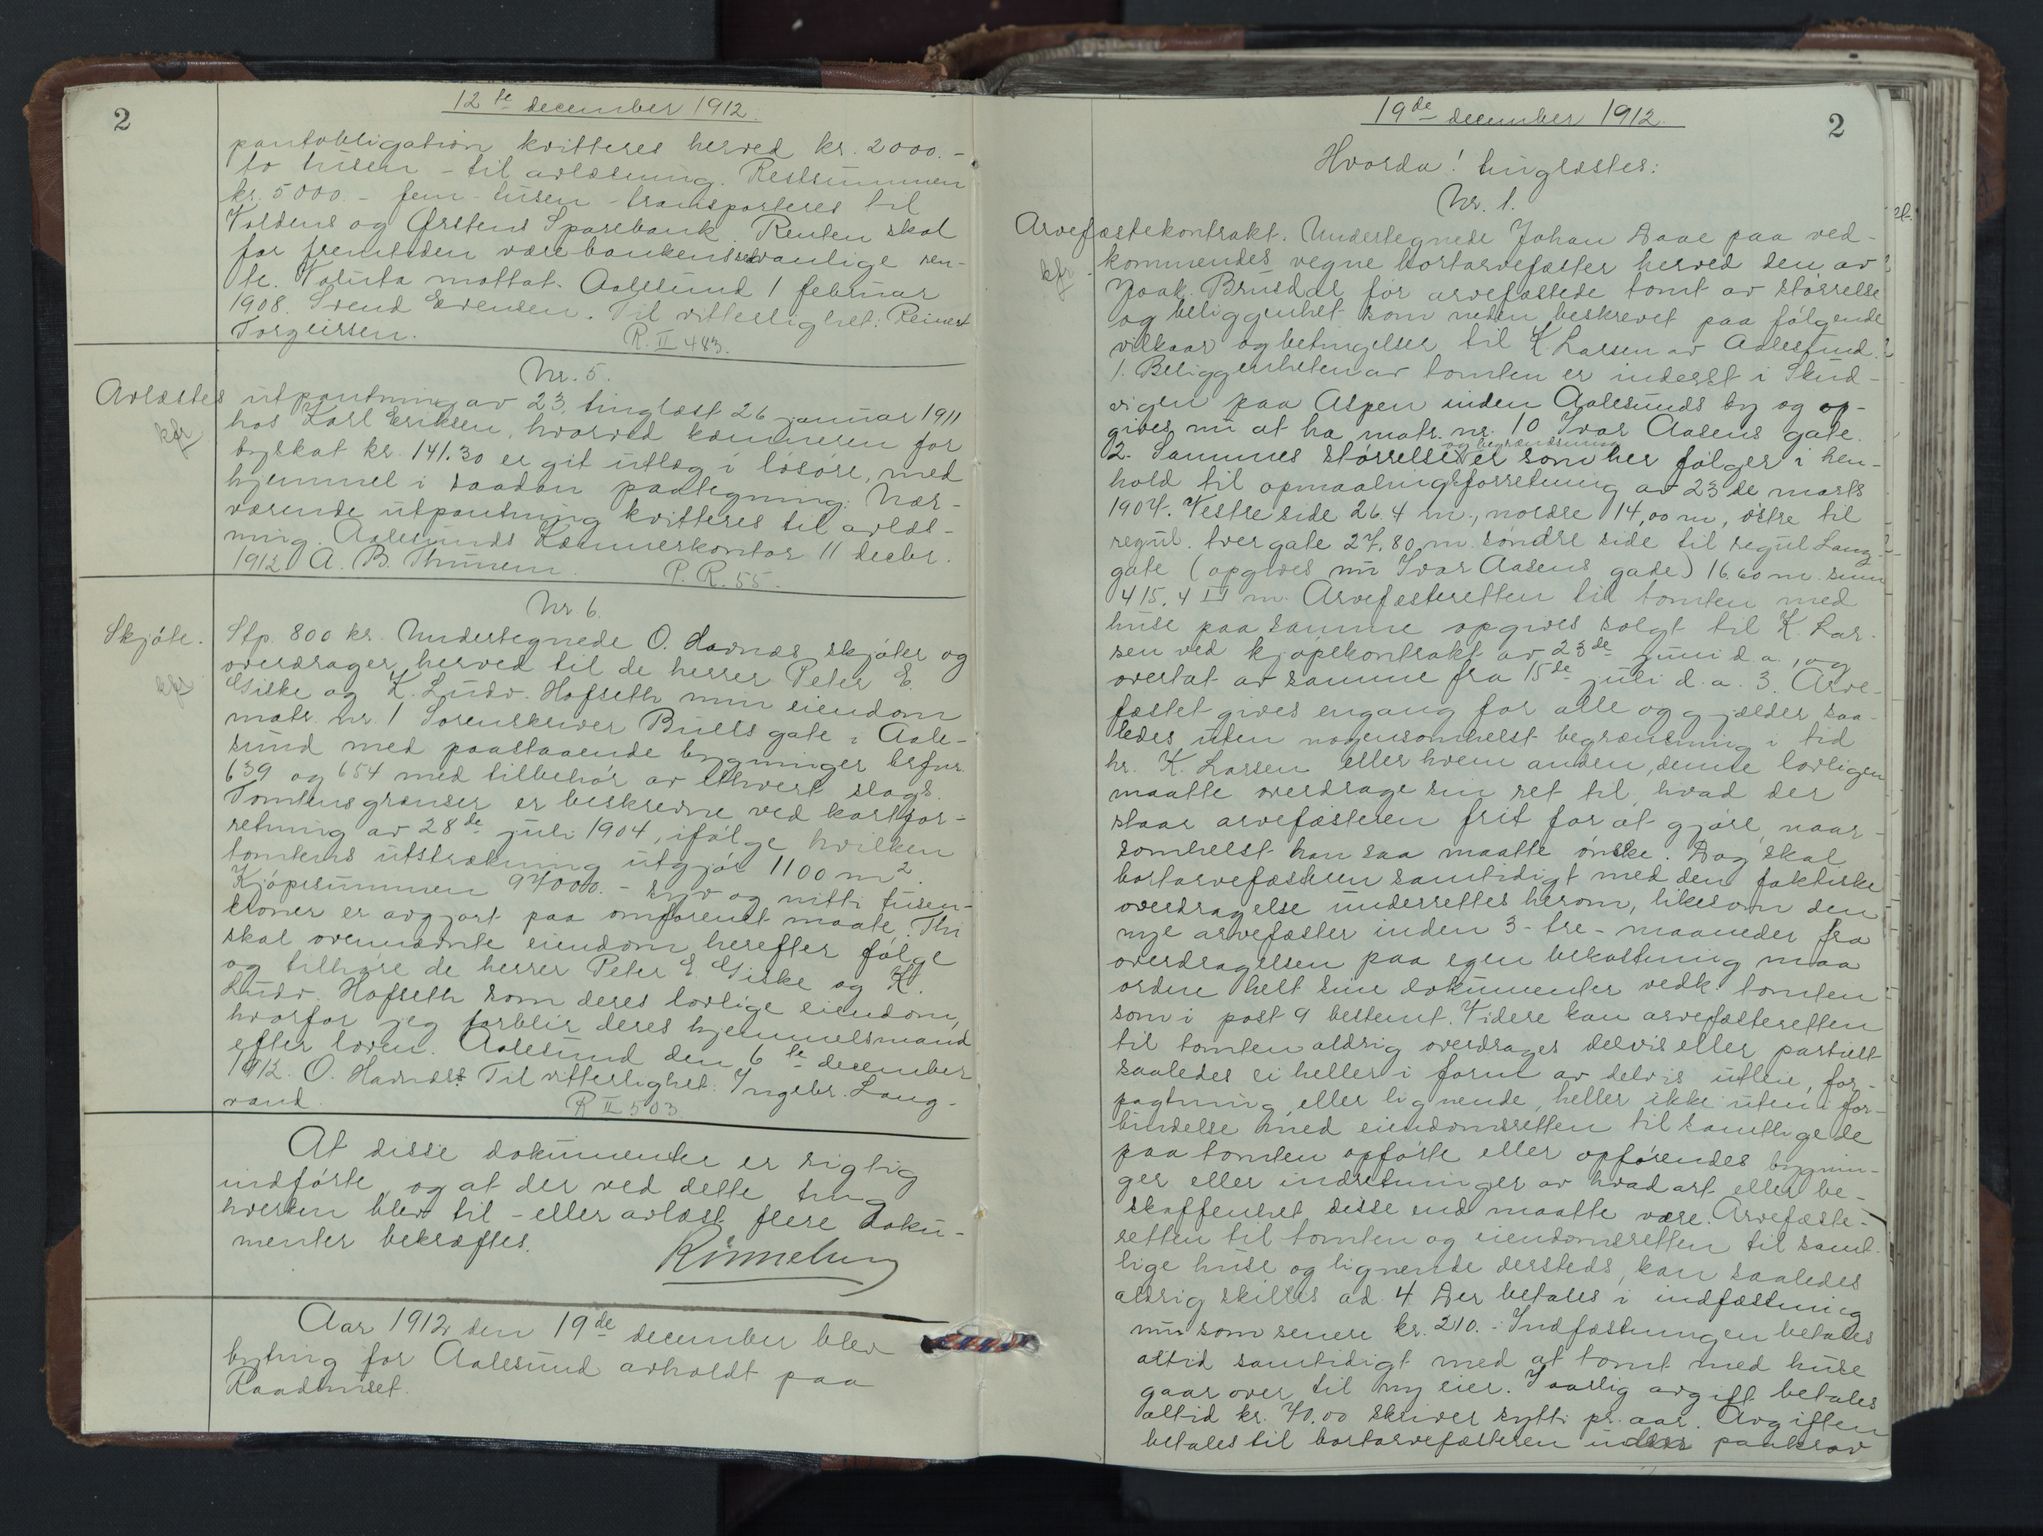 2
12te december 1912.
pantobligation kvitteres herved kr. 2000.-
to tusen - til avlæsning. Restsummen
kr. 5000.- fem - tusen - transporteres til
Voldens og Ørstens Sparebank. Renten skal
for fremtiden være bankens sedvanlige ren-
te. Valuta mottat. Aalesund 1 februar
1908. Svend Svensen. Til vitterlighet: Reinert
Torgeirsen. R. II 483.
Nr. 5.
Avlæstes utpantning av 23, tinglæst 26 januar 1911
kfr
hos Karl Eriksen, hvorved kæmneren for
byskat kr. 141.30 er git utlæg i løsøre, med
hjemmel i saadan paategning: Nær-
værende utpantning kvitteres til avlæs-
ning. Aalesunds Kæmnerkontor 11 decbr.
1912 A. B. Thunem. P. R. 55.
Nr. 6.
Skjøte. Stp. 800 kr. Undertegnede O. Havnæs skjøter og
kfr
overdrager herved til de herrer Peter E.
Giske og K. Ludv. Hofseth min eiendom
matr. nr. 1 Sorenskriver Bulls gate i Aale-
sund med paastaaende bygninger brfnr.
639 og 654 med tilbehør av ethvert slags.
Tomtens grænser er beskrevne ved kartfor-
retning av 28de juli 1904, ifølge hvilken
tomtens utstrækning utgjør 1100 m2.
Kjøpesummen 97000.- syv og nitti tusen-
kroner er avgjort paa omforenet maate. Thi
skal ovennævnte eiendom herefter følge
og tilhøre de herrer Peter E. Giske og K.
Ludv. Hofseth som deres lovlige eiendom,
hvorfor jeg forblir deres hjemmelsmand
efter loven. Aalesund den 6te december
1912. O. Havnæs. Til vitterlighet: Ingebr. Lang-
vand. R II 503
At disse dokumenter er rigtig
indførte og at der ved dette ting
hverken blev til - eller avlæst flere doku-
menter bekræftes.
Aar 1912 den 19de december blev
byting for Aalesund avholdt paa
Raadhuset.
19de december 1912.
2
Hvorda! tinglæstes:
Nr. 1.
Arvefæstekontrakt. Undertegnede Johan Aaae paa ved-
kfr.
kommendes vegne bortarvefæster herved den av
Joak. Brusdal før arvefæstede tomt av størrelse
og beliggenhet som neden beskrevet paa følgende
vilkaar og betingelser til K. Larsen av Aalesund.
1. Beliggenheten av tomten er inderst i Skud-
vigen paa Aspen inden Aalesunds by og op-
gives nu at ha matr. nr. 10 Ivar Aasens gate.
og begrænsning
2. Sammes størrelse er som her følger i hen-
hold til opmaalingsforretning av 23de marts
1904. Vestre side 26.4 m., nordre 14,00 m, østre til
regul. tvergate 27.80 m. søndre side til regul Lang-
gate (opgives nu Ivar Aasens gade) 16.60 m. sum
415.4 □ m. Arvefæsteretten til tomten med
huse paa samme opgives solgt til K. Lar-
sen ved kjøpekontrakt av 23de juni d. a., og
overtat av samme fra 15de juli d. a. 3. Arve-
fæstet gives engang for alle og gjælder saa-
ledes uten nogensomhelst begrænsning i tid
hr. K. Larsen eller hvem anden, denne lovligen
maatte overdrage sin ret til, hvad der
staar arvefæsteren frit for at gjøre, naar-
somhelst han saa maatte ønske. Dog skal
bortarvefæsteren samtidigt med den faktiske
overdragelse underrettes herom, likesom den
nye arvefæster inden 3 - tre - maaneder fra
overdragelsen paa egen bekostning maa
ordne helt sine dokumenter vedk. tomten
som i post 9 bestemt. Videre kan arvefæsteretten
til tomten aldrig overdrages delvis eller partielt
saaledes ei heller i form av delvis utleie, for-
pagtning eller lignende, heller ikke uten i for-
bindelse med eiendomsretten til samtlige de
paa tomten opførte eller opførendes bygnin-
ger eller indretninger av hvad art eller be-
skaffenhet disse end maatte være. Arvefæste-
retten til tomten og eiendomsretten til samt-
lige huse og lignende dersteds, kan saaledes
aldrig skilles ad. 4. Der betales i indfæstning
nu som senere kr. 210.- Indfæstningen betales
altid samtidigt med at tomt med huse
gaar over til ny eier. I aarlig avgift betales
altid kr. 70.00 skriver sytti pr. aar. Avgiften
betales til bortarvefæsteren uden paakrav